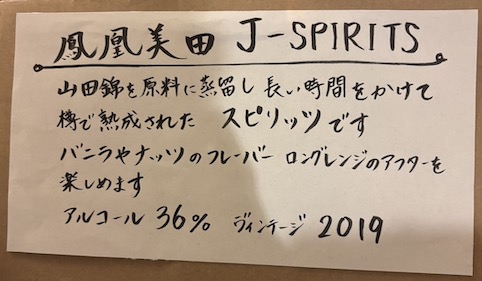 鳳凰美田 J-SPIRITS
山田錦を原料に蒸留し 長い時間をかけて
樽で熟成された スピリッツです
バニラやナッツのフレーバー ロングレンジのアフターを
楽しめます
アルコール 36% ヴィンテージ 2019